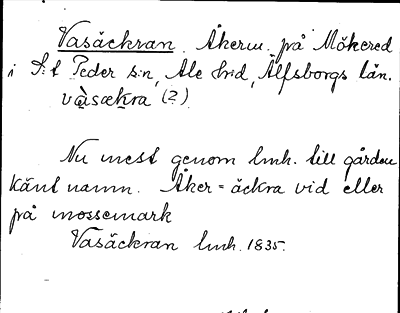 Vasäckran. Åkerm. på Mökered
i S:t Peder s:n, Ale hrd, Älfsborgs län.
vàsækra (?)
Nu mest genom lmh. till gården
känt namn. Åker = äckra vid eller
på mossemark
Vasäckran lmh. 1835.